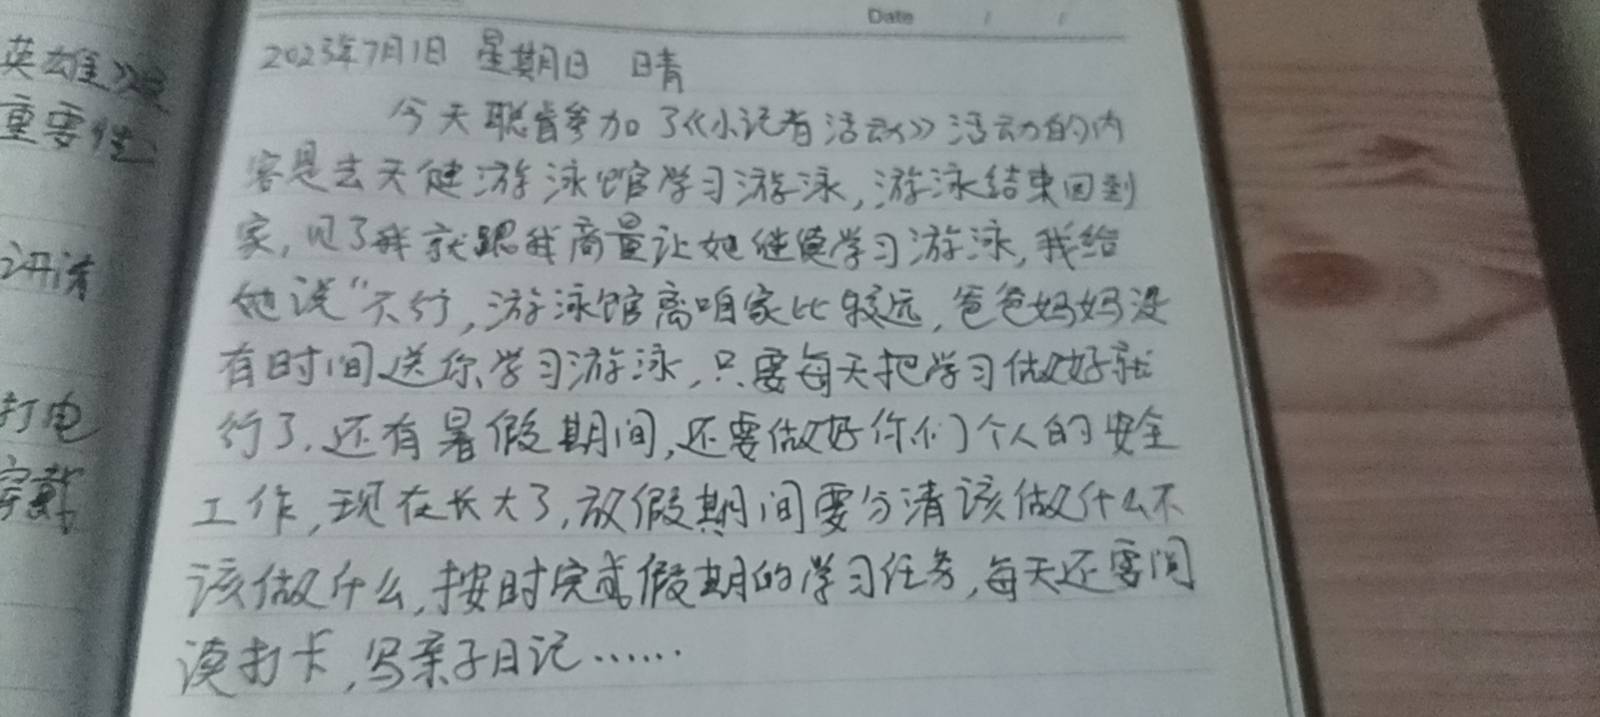 Date / /
2023年7月1日 星期日 晴
今天聪睿参加了《小记者活动》活动的内
容是去天健游泳馆学习游泳,游泳结束回到
家,见了我就跟我商量让她继续学习游泳,我给
她说“不行,游泳馆离咱家比较远,爸爸妈妈没
有时间送你学习游泳,只要每天把学习做好就
行了.还有暑假期间,还要做好你们个人的安全
工作,现在长大了,放假期间要分清该做什么不
该做什么,按时完成假期的学习任务,每天还要阅
读打卡,写亲子日记……
英雄》
重要性
打电
穿戴